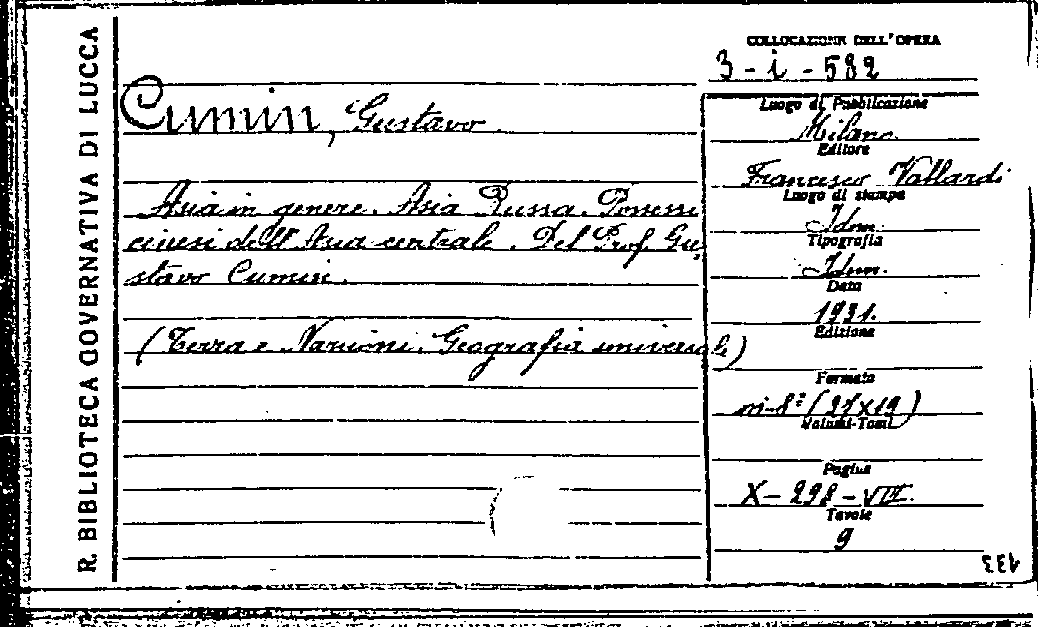 R. BIBLIOTECA GOVERNATIVA DI LUCCA
COLLOCAZIONE DELL'OPERA
3 - i - 582
Cumin, Gustavo.
Asia in genere. Asia Russa. Possessi
cinesi dell'Asia centrale. Del Prof. Gu
stavo Cumin.
(Terra e Nazioni. Geografia universale)
Luogo di Pubblicazione
Milano.
Editore
Francesco Vallardi
Luogo di stampa
Idem.
Tipografia
Idem.
Data
1931.
Edizione
Formato
in-8º (27x19)
Volumi-Tomi
Pagine
X - 298 - VIII.
Tavole
9
133